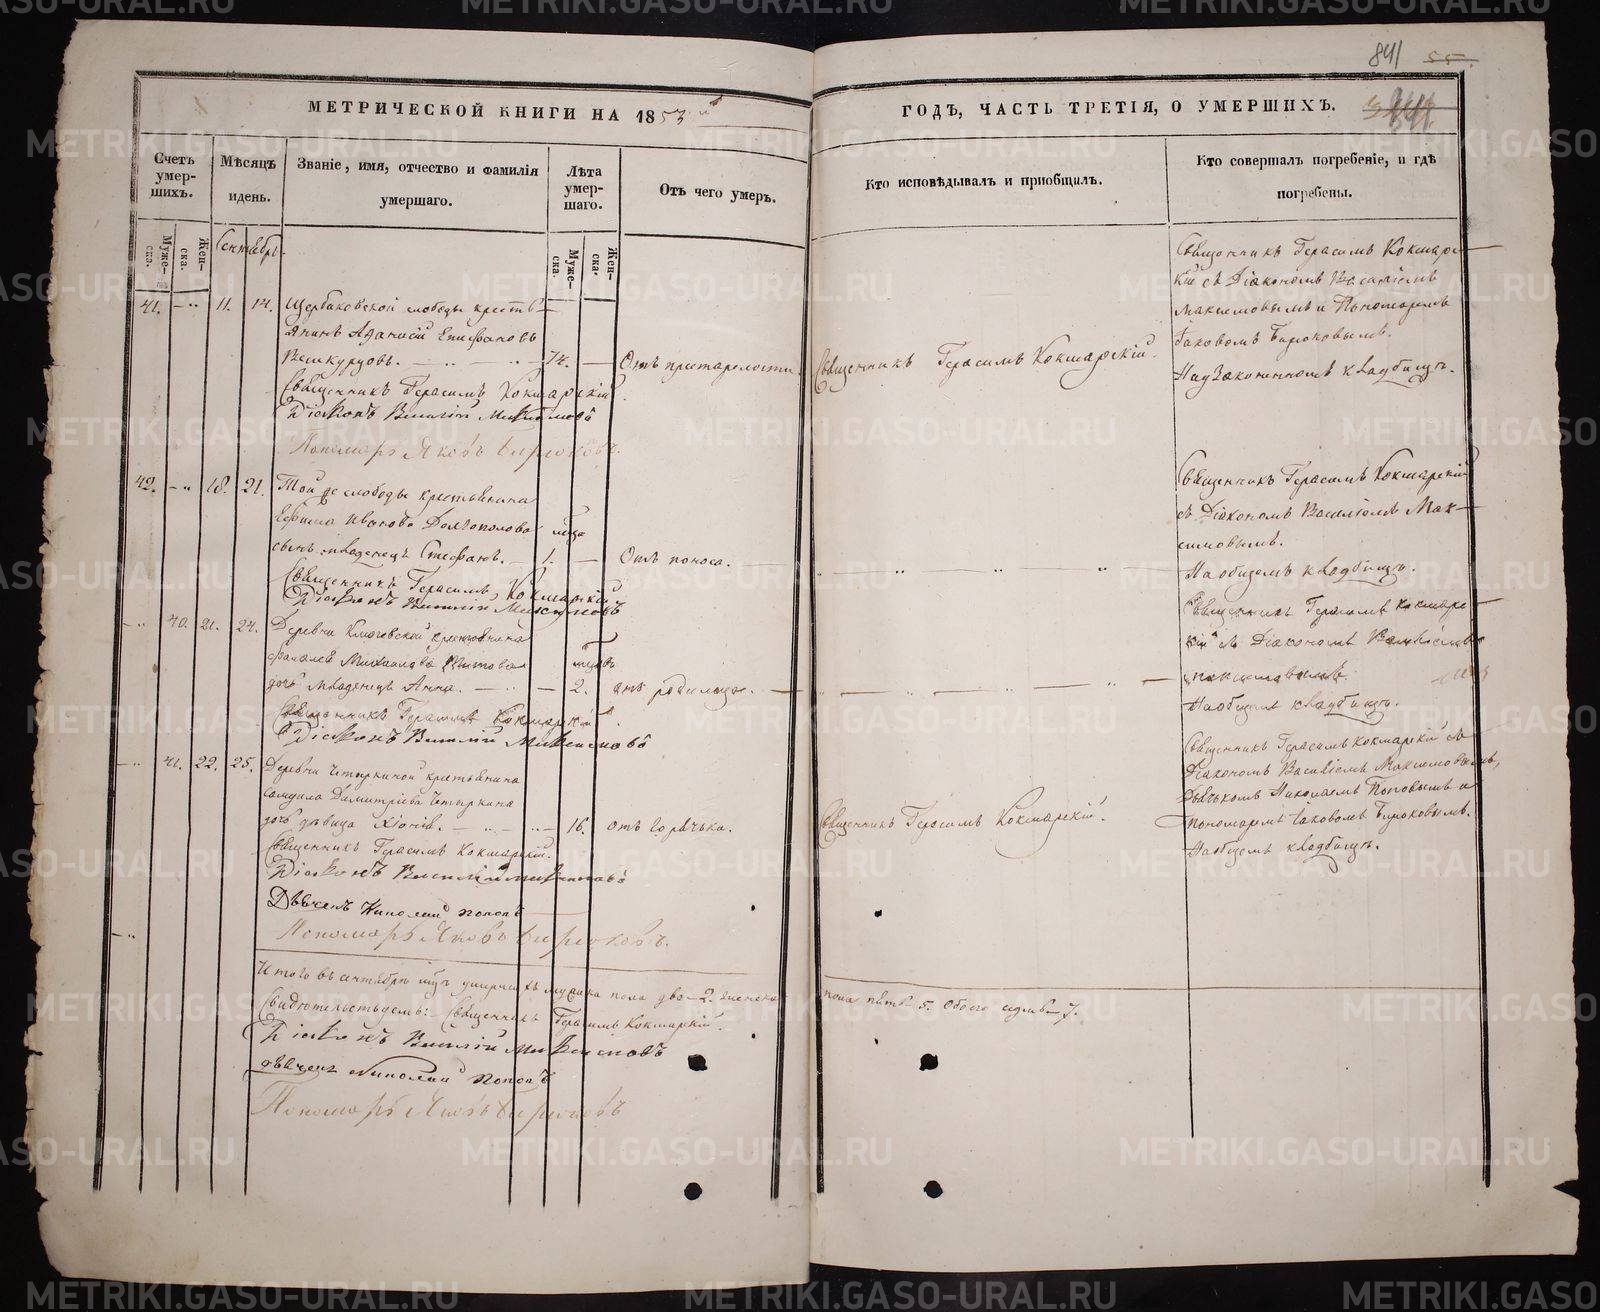 841 55.
МЕТРИЧЕСКОЙ КНИГИ НА 1853й
ГОДЪ, ЧАСТЬ ТРЕТІЯ, О УМЕРШИХЪ.
Счетъ умер-шихъ.
Муже-ска.
Жен-ска.
Мѣсяцъ идень.
Званіе, имя, отчество и фамилія умершаго.
Лѣта умер-шаго.
Муже-ска.
Жен-ска.
Отъ чего умеръ.
Кто исповѣдывалъ и пріобщилъ.
Кто совершалъ погребеніе, и гдѣ погребены.
Сентябрь.
41. 11. 14. Щербаковской слободы кресть-
янинъ Афанасій Епифановъ
74. Отъ престарелости. Священникъ Герасимъ Кокшарскій.
Священникъ Герасимъ Кокшарскій
Діаконъ Василій Максимовъ
Пономарь Яковъ Бирюковъ.
Священникъ Герасимъ Кокшарс-
кій съ Діакономъ Василіемъ
Максимовымъ и Пономаремъ
Іаковомъ Бирюковымъ.
кладбищѣ.
42. 18. 21. Той же слободы крестьянина
Ефима Иванова Долгополова
сынъ младенецъ Стефанъ. 1. Отъ поноса.
Священникъ Герасимъ Кокшарскій
Діаконъ Василій Максимовъ
Священникъ Герасимъ Кокшарскій
съ Діакономъ Василіемъ Мак-
симовымъ.
На общемъ кладбищѣ.
40. 21. 24. Деревни Ключевской крестьянина
Михайлова Титова
дочь младенецъ Анна. 2. отъ родимца.
Священникъ Герасимъ Кокшарскій.
Діаконъ Василій Максимовъ
Священникъ Герасимъ Кокшарс-
кій съ Діакономъ Василіемъ
Максимовымъ.
На общемъ кладбищѣ.
41. 22. 25. Деревни Четыркиной крестьянина
Самуила Димитріева Четыркина
дочь дѣвица Хіонія. 16. отъ горячки. Священникъ Герасимъ Кокшарскій.
Священникъ Герасимъ Кокшарскій.
Діаконъ Василій Максимовъ
Дьячекъ Николай Попов
Пономарь Яковъ Бирюковъ.
Священникъ Герасимъ Кокшарскій съ
Діакономъ Василіемъ Максимовымъ,
Дьячкомъ Николаемъ Поповымъ и
пономаремъ Іаковомъ Бирюковымъ.
На общемъ кладбищѣ.
Итого въ сентябрѣ м-цѣ умершихъ мужска пола два-2. женска
пола пять 5. Обоего седмь-7.
Священникъ Герасимъ Кокшарскій.
Діаконъ Василій Максимовъ
дьячекъ Николай Попов
Пономарь Яковъ Бирюковъ
METRIKI.GASO-URAL.RU